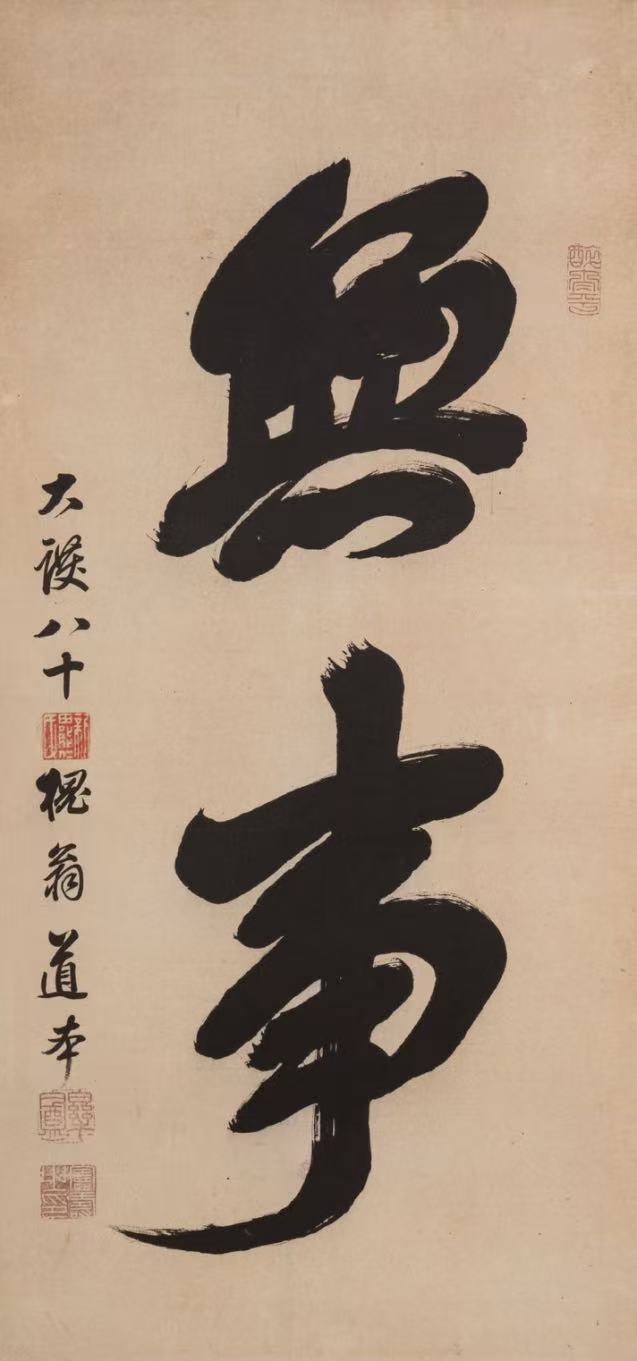 無事
大護八十
槐翁道本